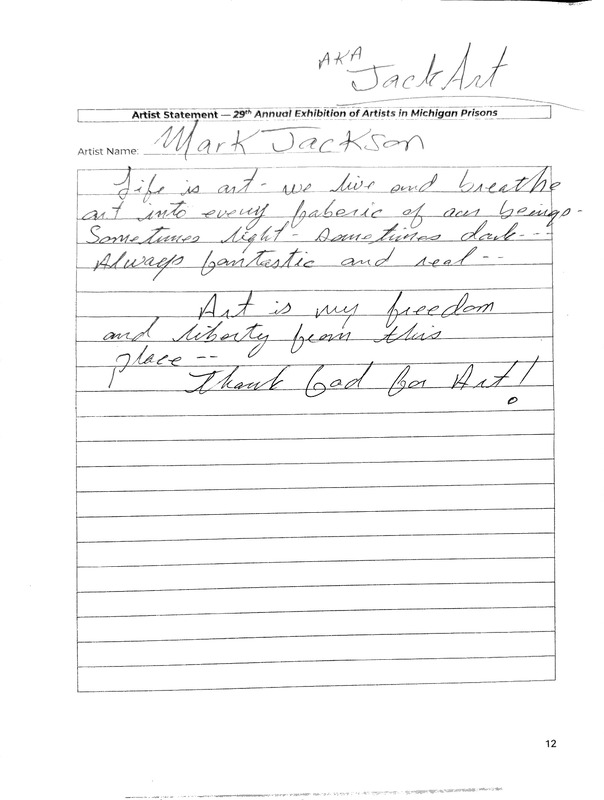 AKA
JackArt
Artist Statement — 29th Annual Exhibition of Artists in Michigan Prisons
Artist Name: Mark Jackson
Life is art - we live and breathe
art into every faberic of our beings -
Sometimes light - sometimes dark ---
Always fantastic and real --
Art is my freedom
and liberty from this
place --
Thank God for Art!
12